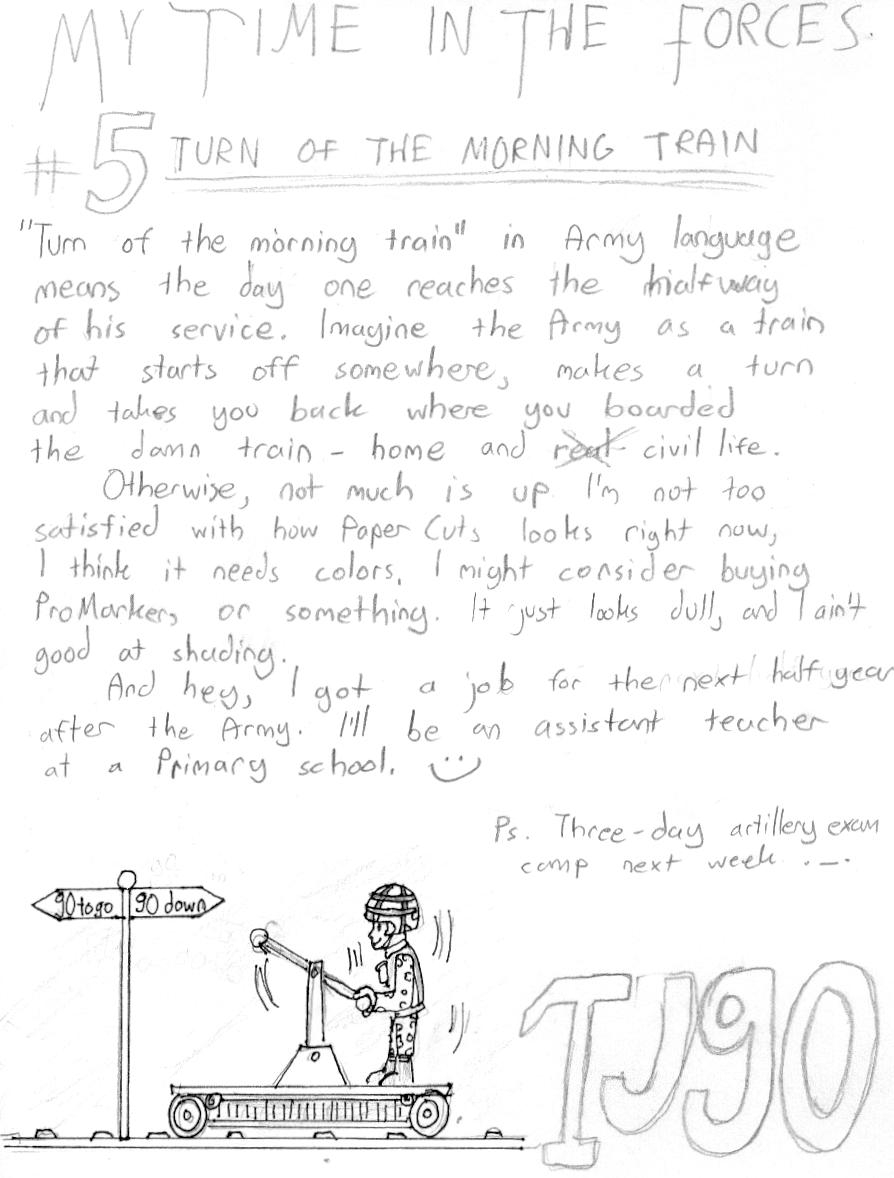 MY TIME IN THE FORCES.
#5 TURN OF THE MORNING TRAIN
"Turn of the morning train" in Army language
means the day one reaches the halfway
of his service. Imagine the Army as a train
that starts off somewhere, makes a turn
and takes you back where you boarded
the damn train - home and real civil life.
Otherwise, not much is up. I'm not too
satisfied with how Paper Cuts looks right now,
I think it needs colors. I might consider buying
ProMarkers or something. It just looks dull, and I ain't
good at shading.
And hey, I got a job for the next half year
after the Army. I'll be an assistant teacher
at a Primary school.
Ps. Three-day artillery exam
camp next week . _ .
90 to go 90 down
TJ90